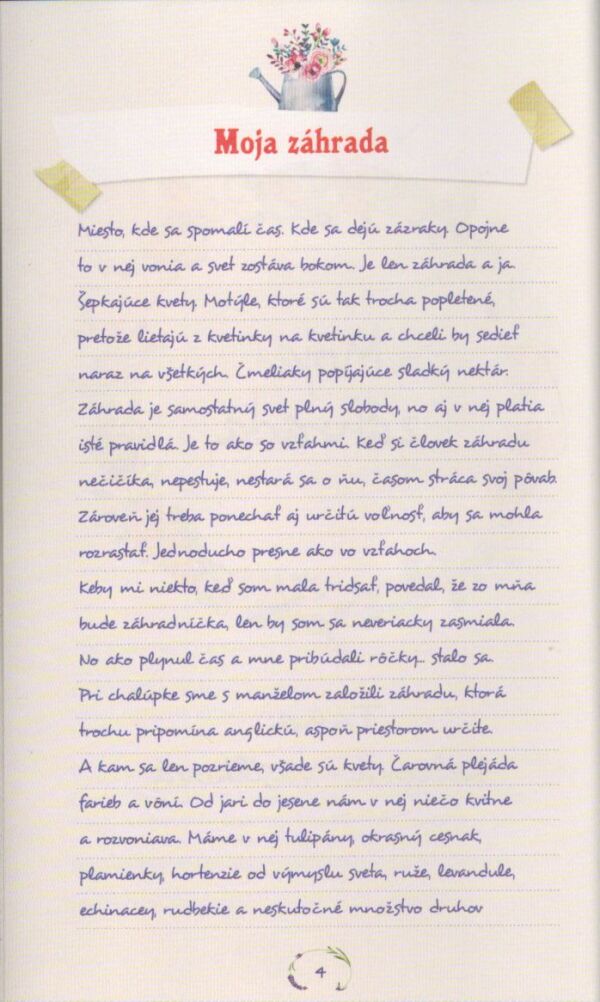 Moja záhrada
Miesto, kde sa spomalí čas. Kde sa dejú zázraky. Opojne
to v nej vonia a svet zostáva bokom. Je len záhrada a ja.
Šepkajúce kvety. Motýle, ktoré sú tak trocha popletené,
pretože lietajú z kvetinky na kvetinku a chceli by sedieť
naraz na všetkých. Čmeliaky popíjajúce sladký nektár.
Záhrada je samostatný svet plný slobody, no aj v nej platia
isté pravidlá. Je to ako so vzťahmi. Keď si človek záhradu
nečičíka, nepestuje, nestará sa o ňu, časom stráca svoj pôvab.
Zároveň jej treba ponechať aj určitú voľnosť, aby sa mohla
rozrastať. Jednoducho presne ako vo vzťahoch.
Keby mi niekto, keď som mala tridsať, povedal, že zo mňa
bude záhradníčka, len by som sa neveriacky zasmiala.
No ako plynul čas a mne pribúdali rôčky... stalo sa.
Pri chalúpke sme s manželom založili záhradu, ktorá
trochu pripomína anglickú, aspoň priestorom určite.
A kam sa len pozrieme, všade sú kvety. Čarovná plejáda
farieb a vôní. Od jari do jesene nám v nej niečo kvitne
a rozvoniava. Máme v nej tulipány, okrasný cesnak,
plamienky, hortenzie od výmyslu sveta, ruže, levandule,
echinacey, rudbekie a neskutočné množstvo druhov
4